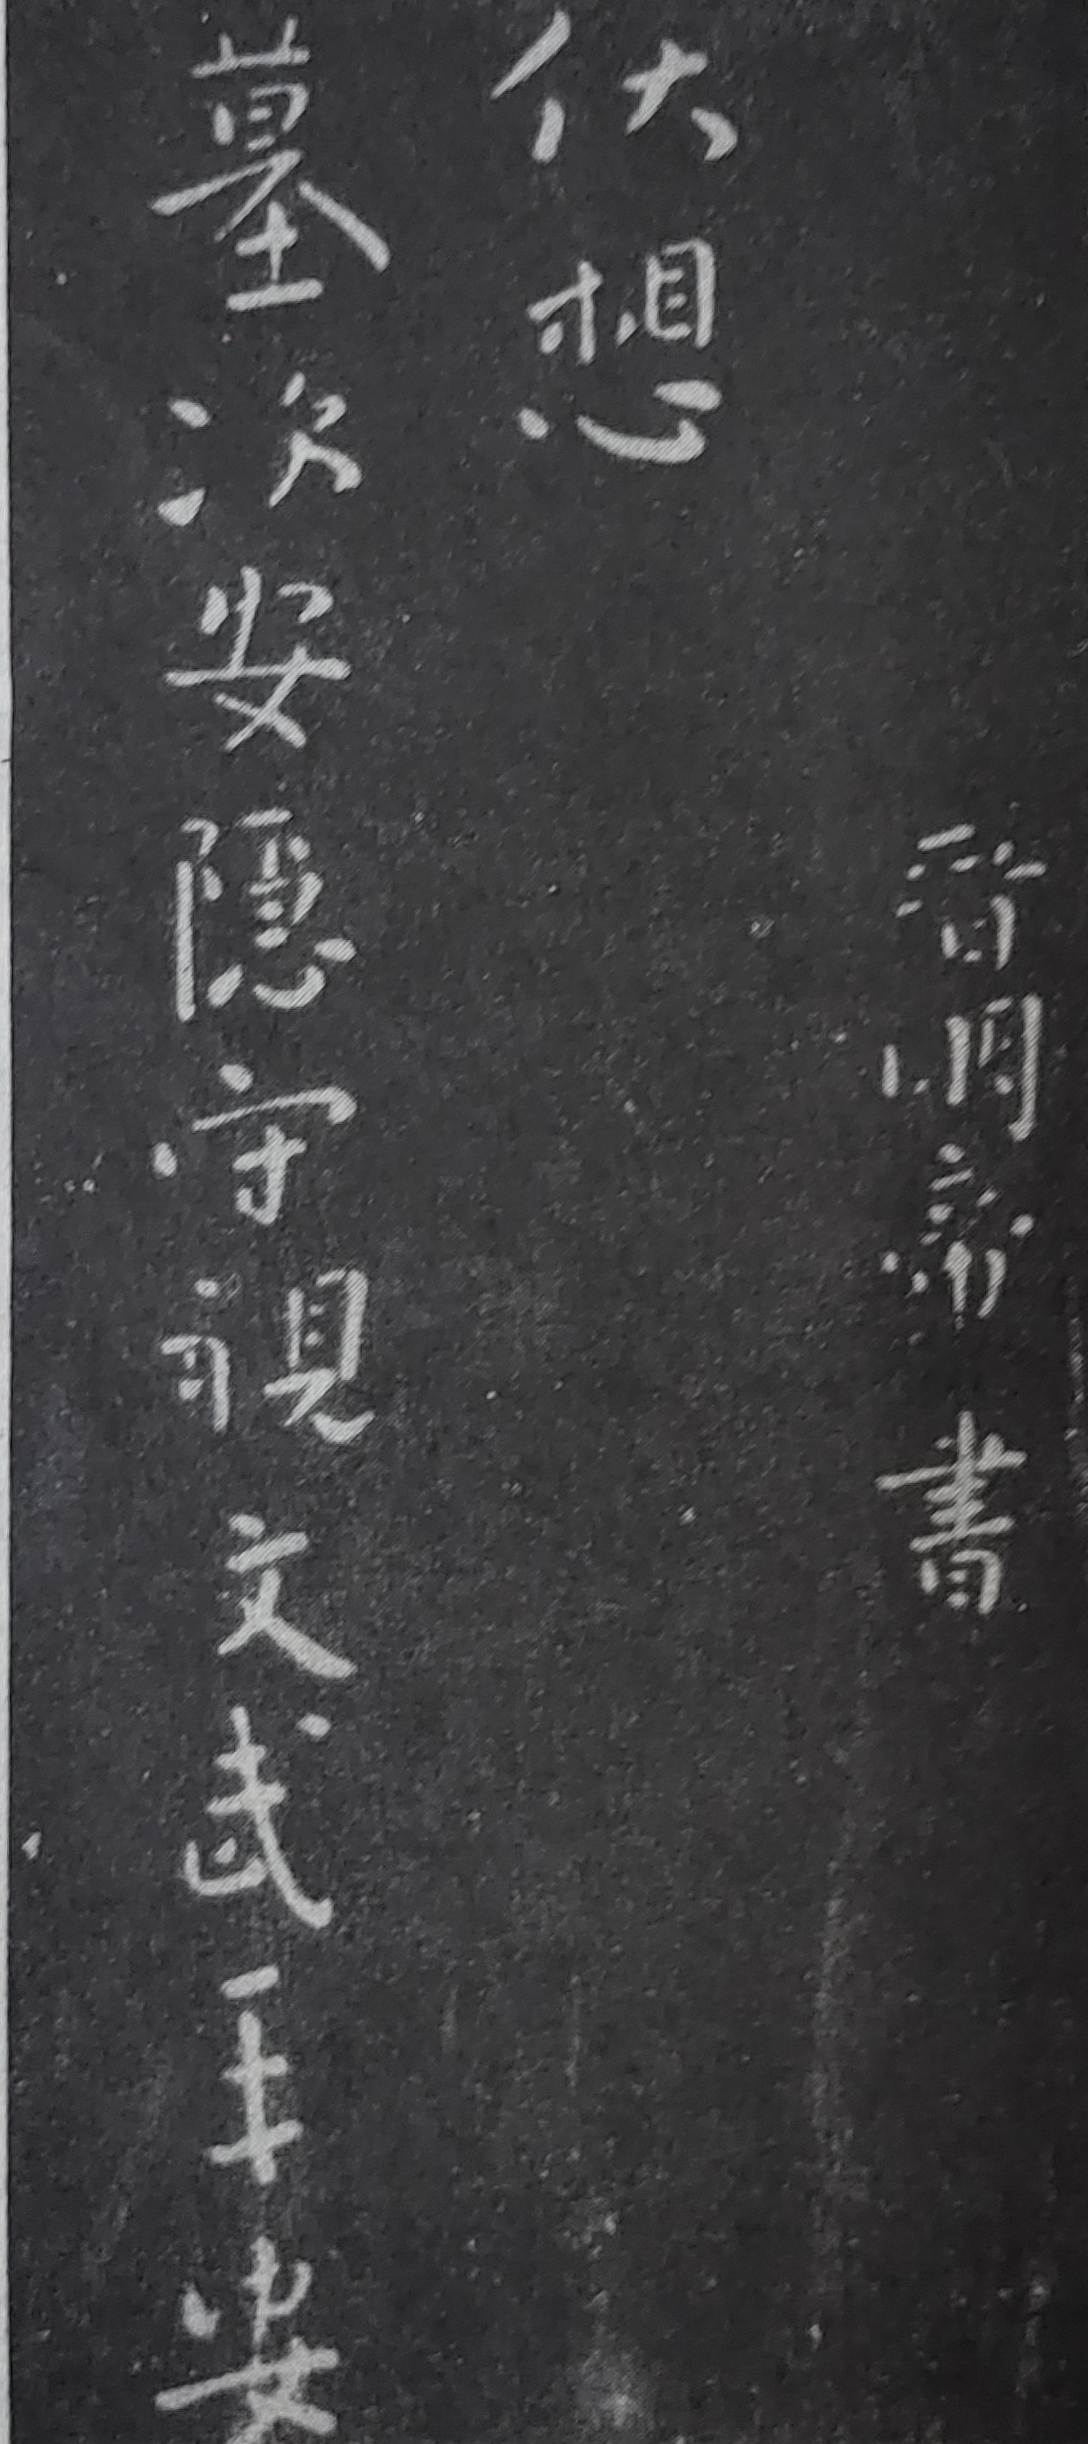 晉明帝書
伏想
墓次安隱守視文武